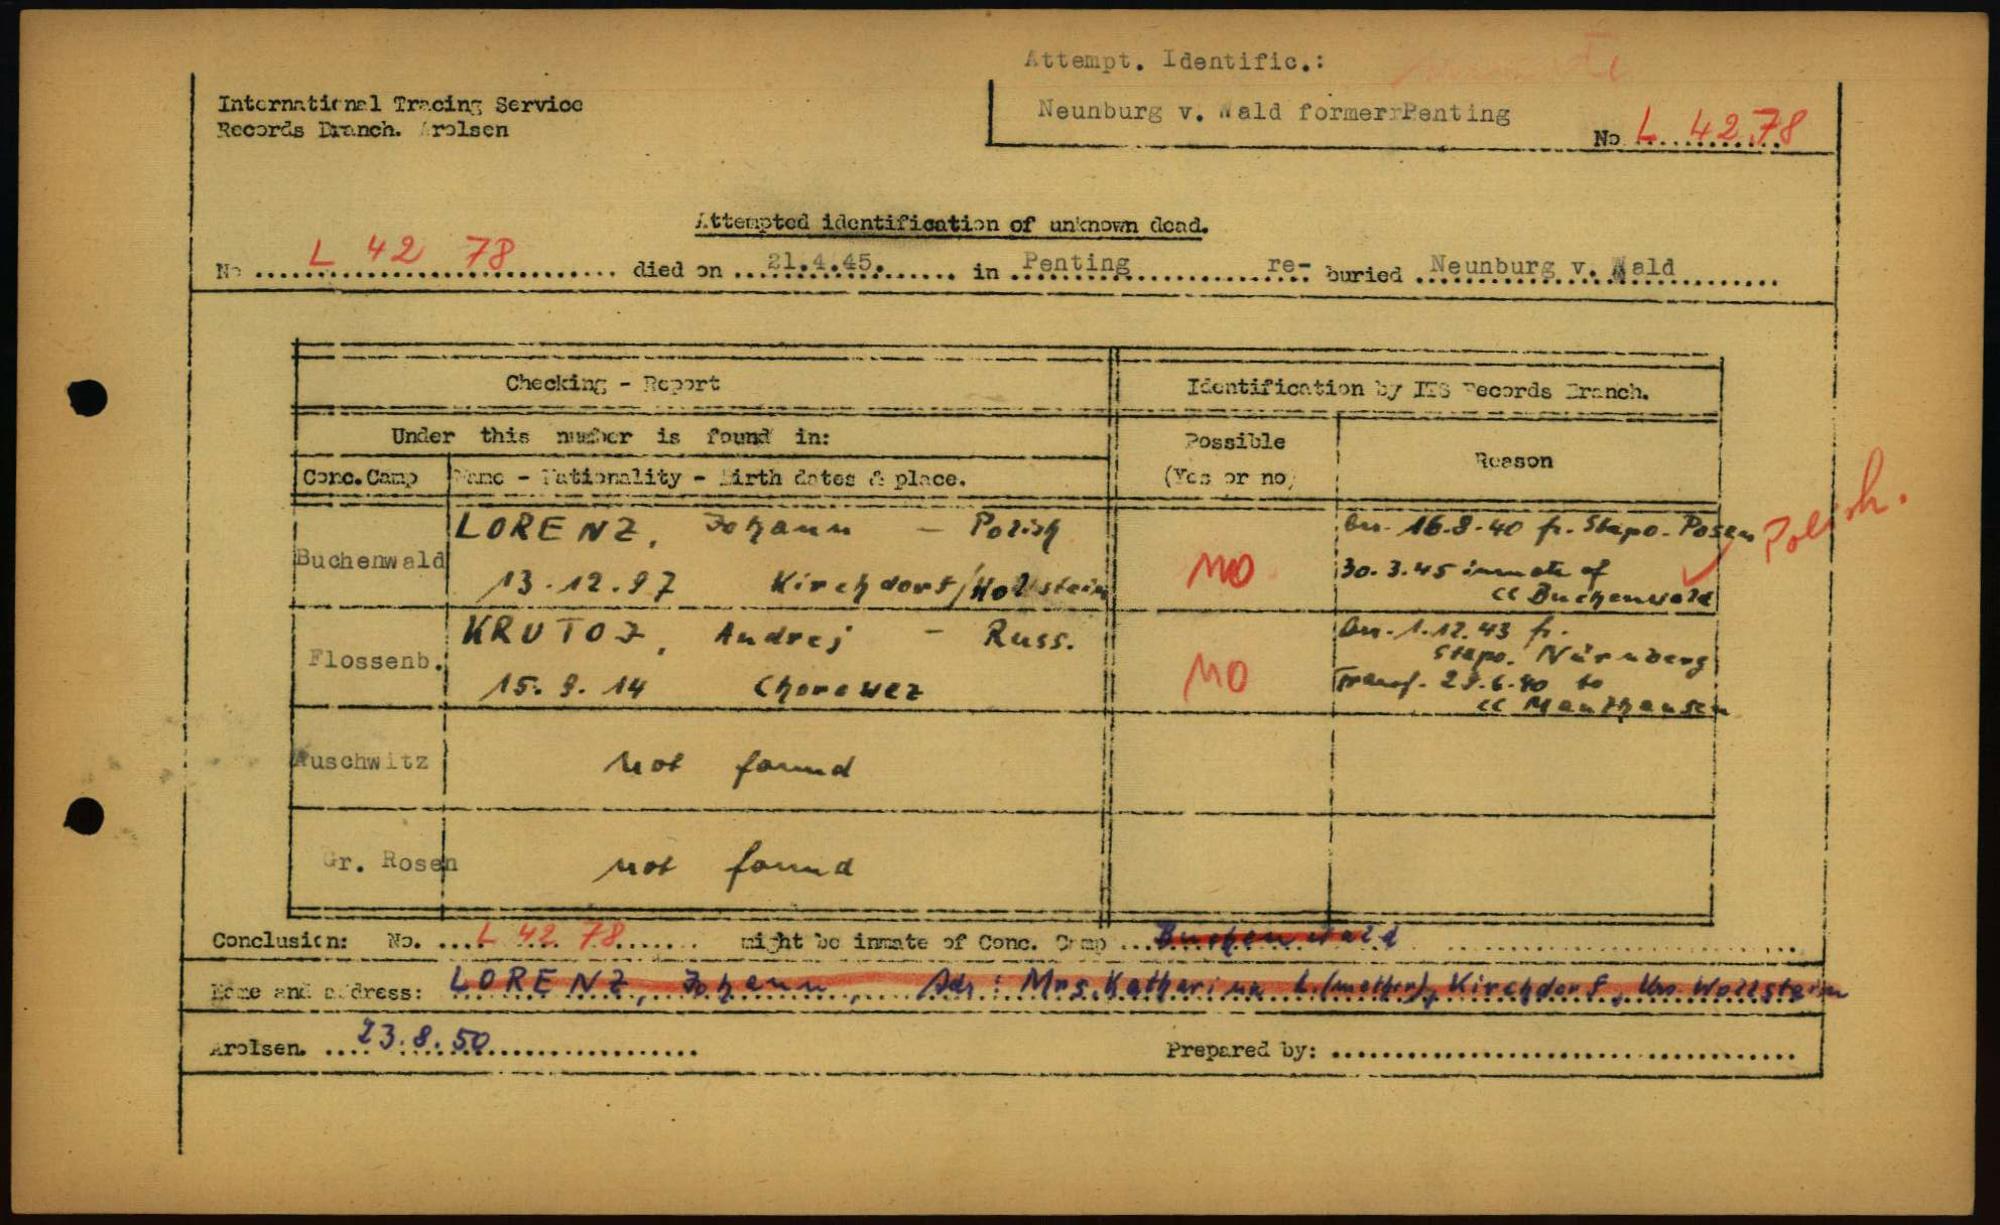 Attempt. Identific.:
International Tracing Service
Records Branch. Arolsen
Neunburg v. Wald former Penting
No L 42 78
Attempted identification of unknown dead.
No L 42 78 died on 21.4.45. in Penting re- buried Neunburg v. Wald
Checking - Report
Identification by ITS Records Branch.
Under this number is found in:
Possible
(Yes or no)
Reason
Conc. Camp
Name - Nationality - Birth dates & place.
Polish.
Buchenwald
LORENZ, Johann - Polish
13.12.97 Kirchdorf/Wollstein
NO
arr. 16.8.40 fr. Stapo. Posen
30.3.45 inmate of
CC Buchenwald
Flossenb.
KRUTOJ, Andrej - Russ.
15.9.14 Chorewez
NO
arr. 1.12.43 fr.
Stapo. Nürnberg
Transf. 29.6.40 to
CC Mauthausen
Auschwitz
not found
Gr. Rosen
not found
Conclusion: No. L 42 78 might be inmate of Conc. Camp Buchenwald
Name and address: LORENZ, Johann, Adr: Mrs. Katharina L. (mother), Kirchdorf, Krs. Wollstein
Arolsen. 23.8.50
Prepared by: